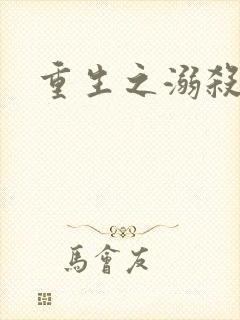 重生之溺殺
馬會友